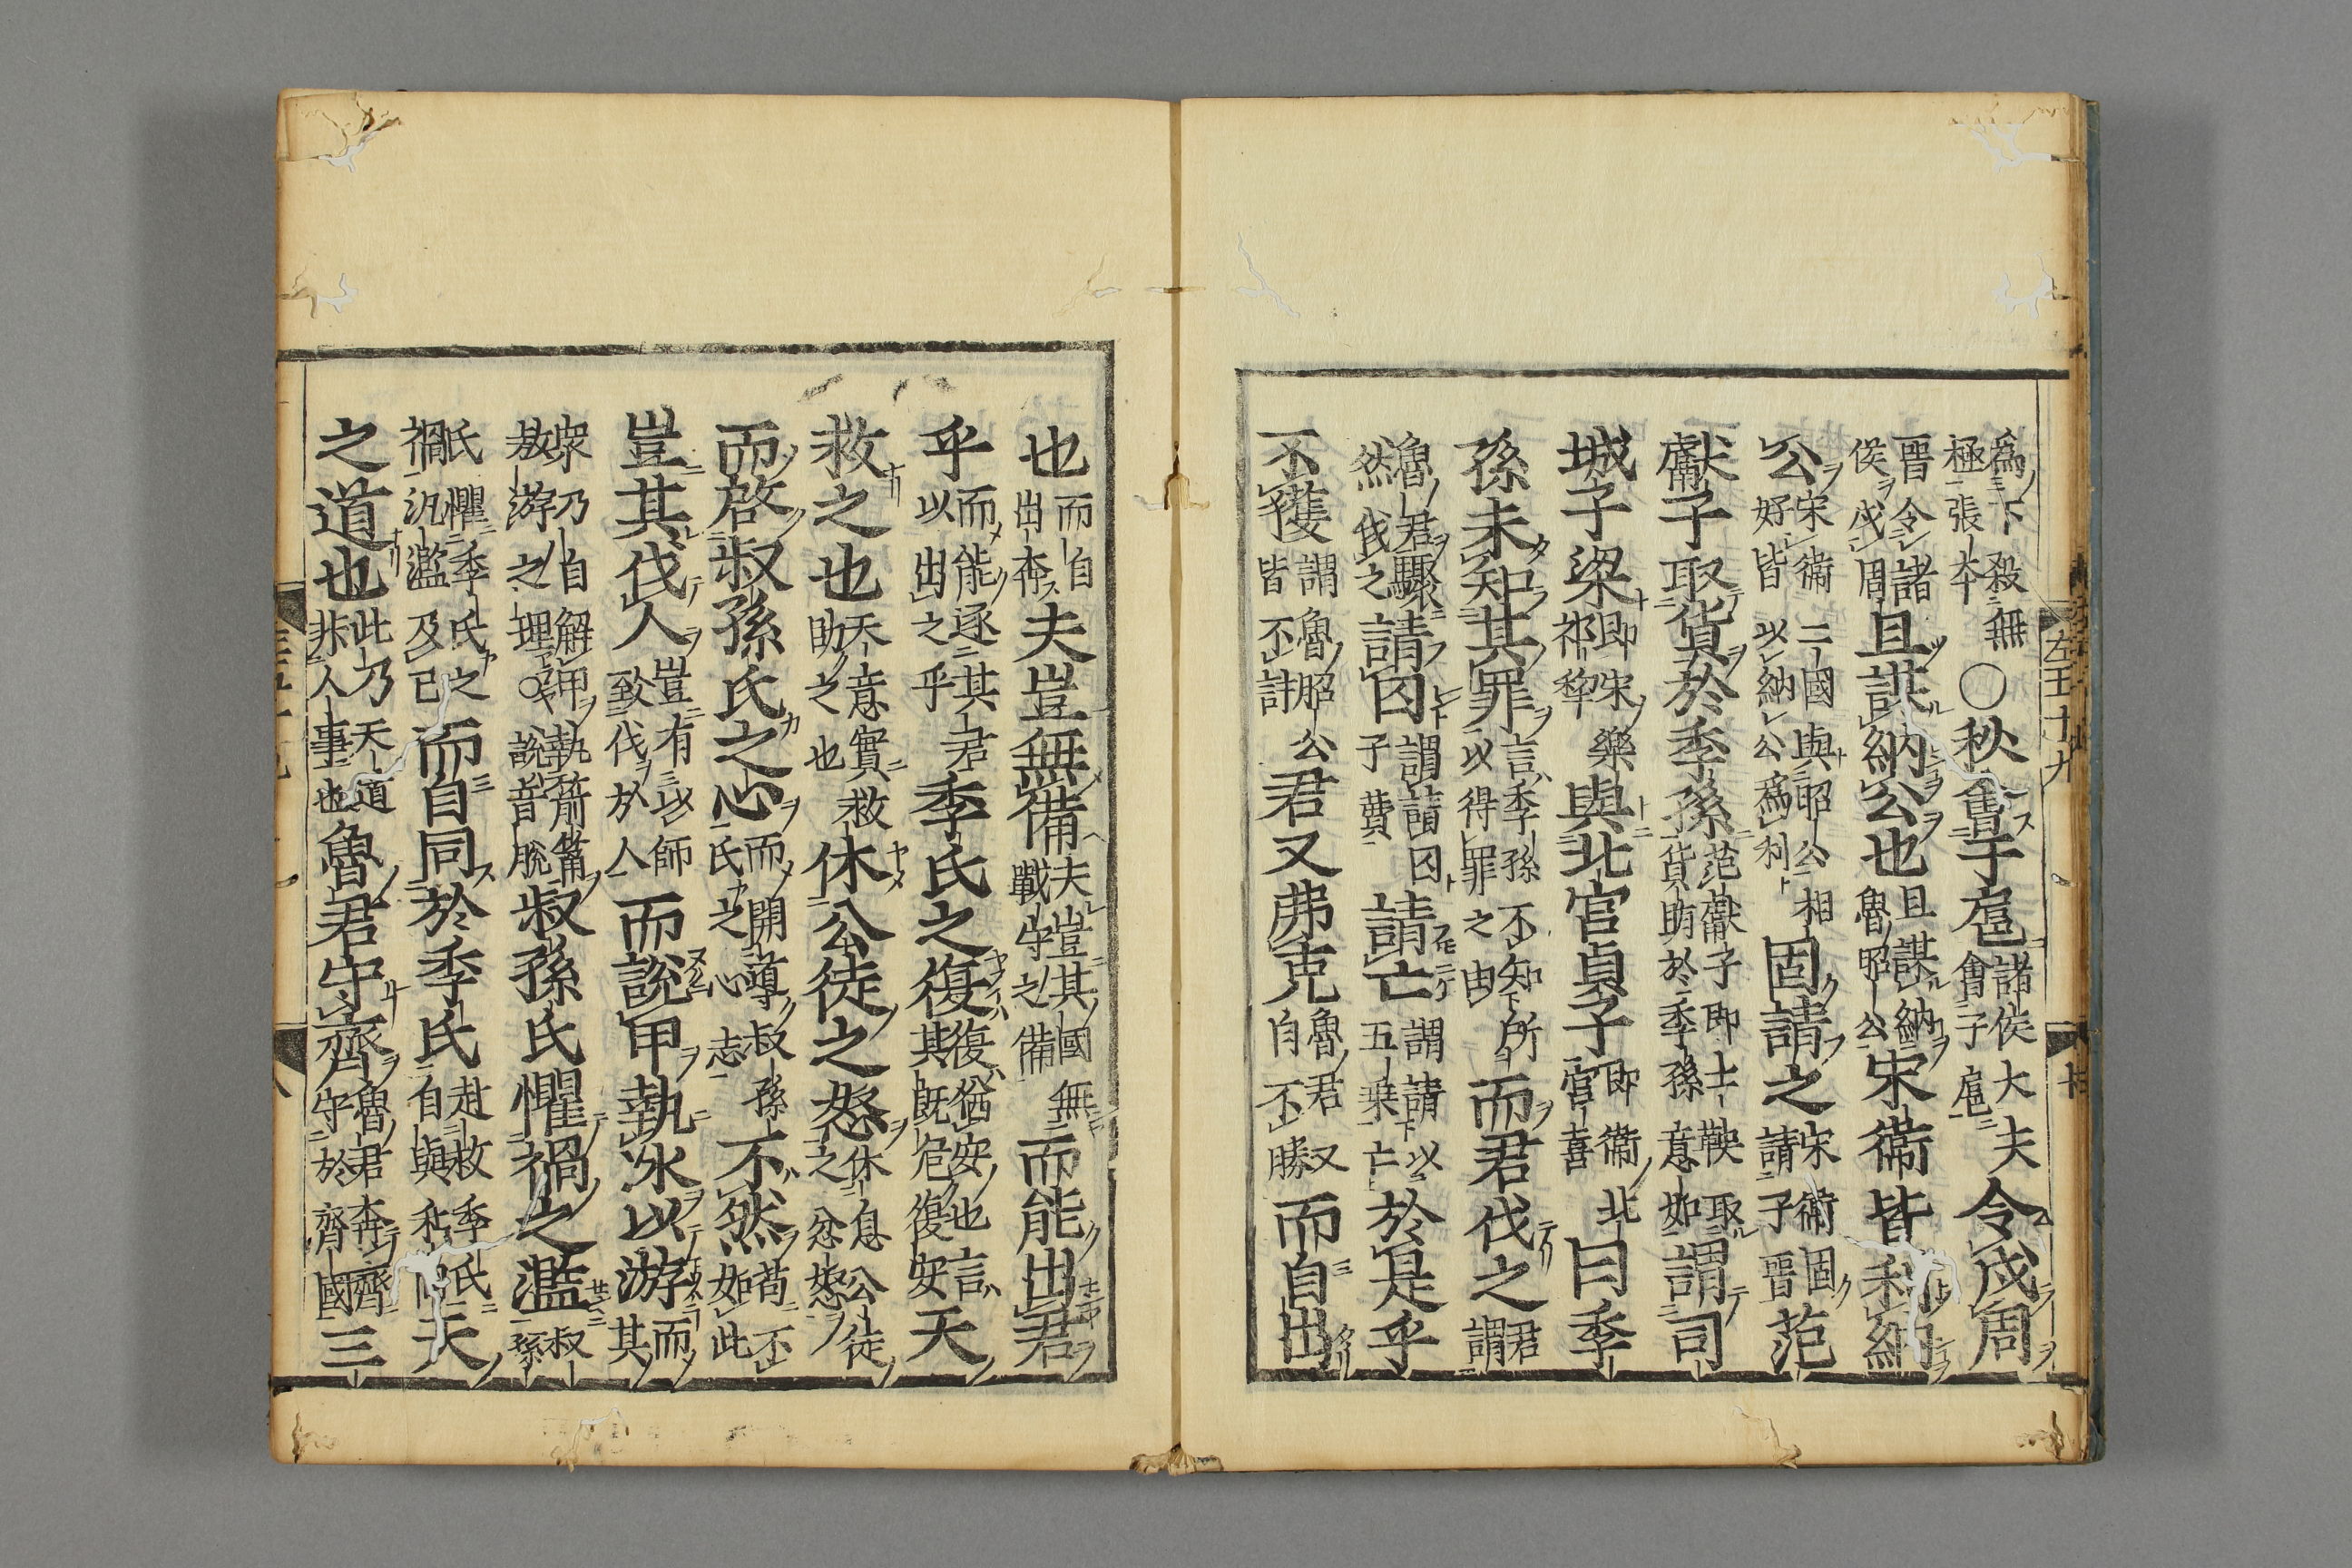 為下殺無極張本○秋會于扈諸侯大夫會子扈令戍周
晋令諸侯戍周且謀納公也且謀納魯昭公宋衞皆利納
公宋衞二國與昭公相好皆以納公為利固請之宋衞固請子晋范
獻子取貨於季孫范獻子即士鞅取貨賄於季孫意如謂司
城子梁即宋樂祁犂與北宮貞子即衞北宮喜曰季
孫未知其罪言季孫不知所以得罪之由而君伐之謂君
魯君驟然伐之請囚謂請囚子費請亡謂請以五乗亡於是乎
不獲謂魯昭公皆不許君又弗克魯君又自不勝而自出
也而自出奔夫豈無備夫豈其國無戰守之備而能出君
乎而能逐其君以出之乎季氏之復復猶安也言其既危復安天
救之也天意實救助之也休公徒之怒休息公徒之忿怒
而啓叔孫氏之心而開導叔孫氏之心志不然苟不如此
豈其伐人豈有以師致伐於人而說甲執冰以游而其
衆乃自解甲執箭筩敖游之理○說音脫叔孫氏懼禍之濫叔孫
氏懼季氏之禍汎濫及己而自同於季氏赴救季氏自與天
之道也此乃天道非人事也魯君守齊魯君奔齊守於齊國三
左五十九